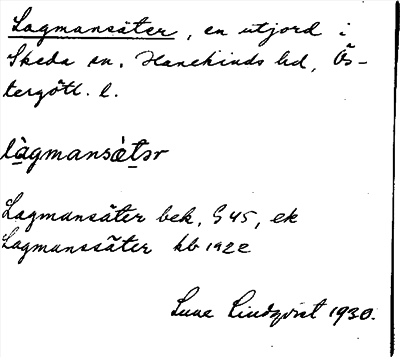 Lagmansäter, en utjord i
Skeda sn, Hanekinds hd, Ös-
tergötl. l.
làgmansè̀tər
Lagmansäter bek. G 45, ek
Lagmanssäter kb 1922
Sune Lindqvist 1930.